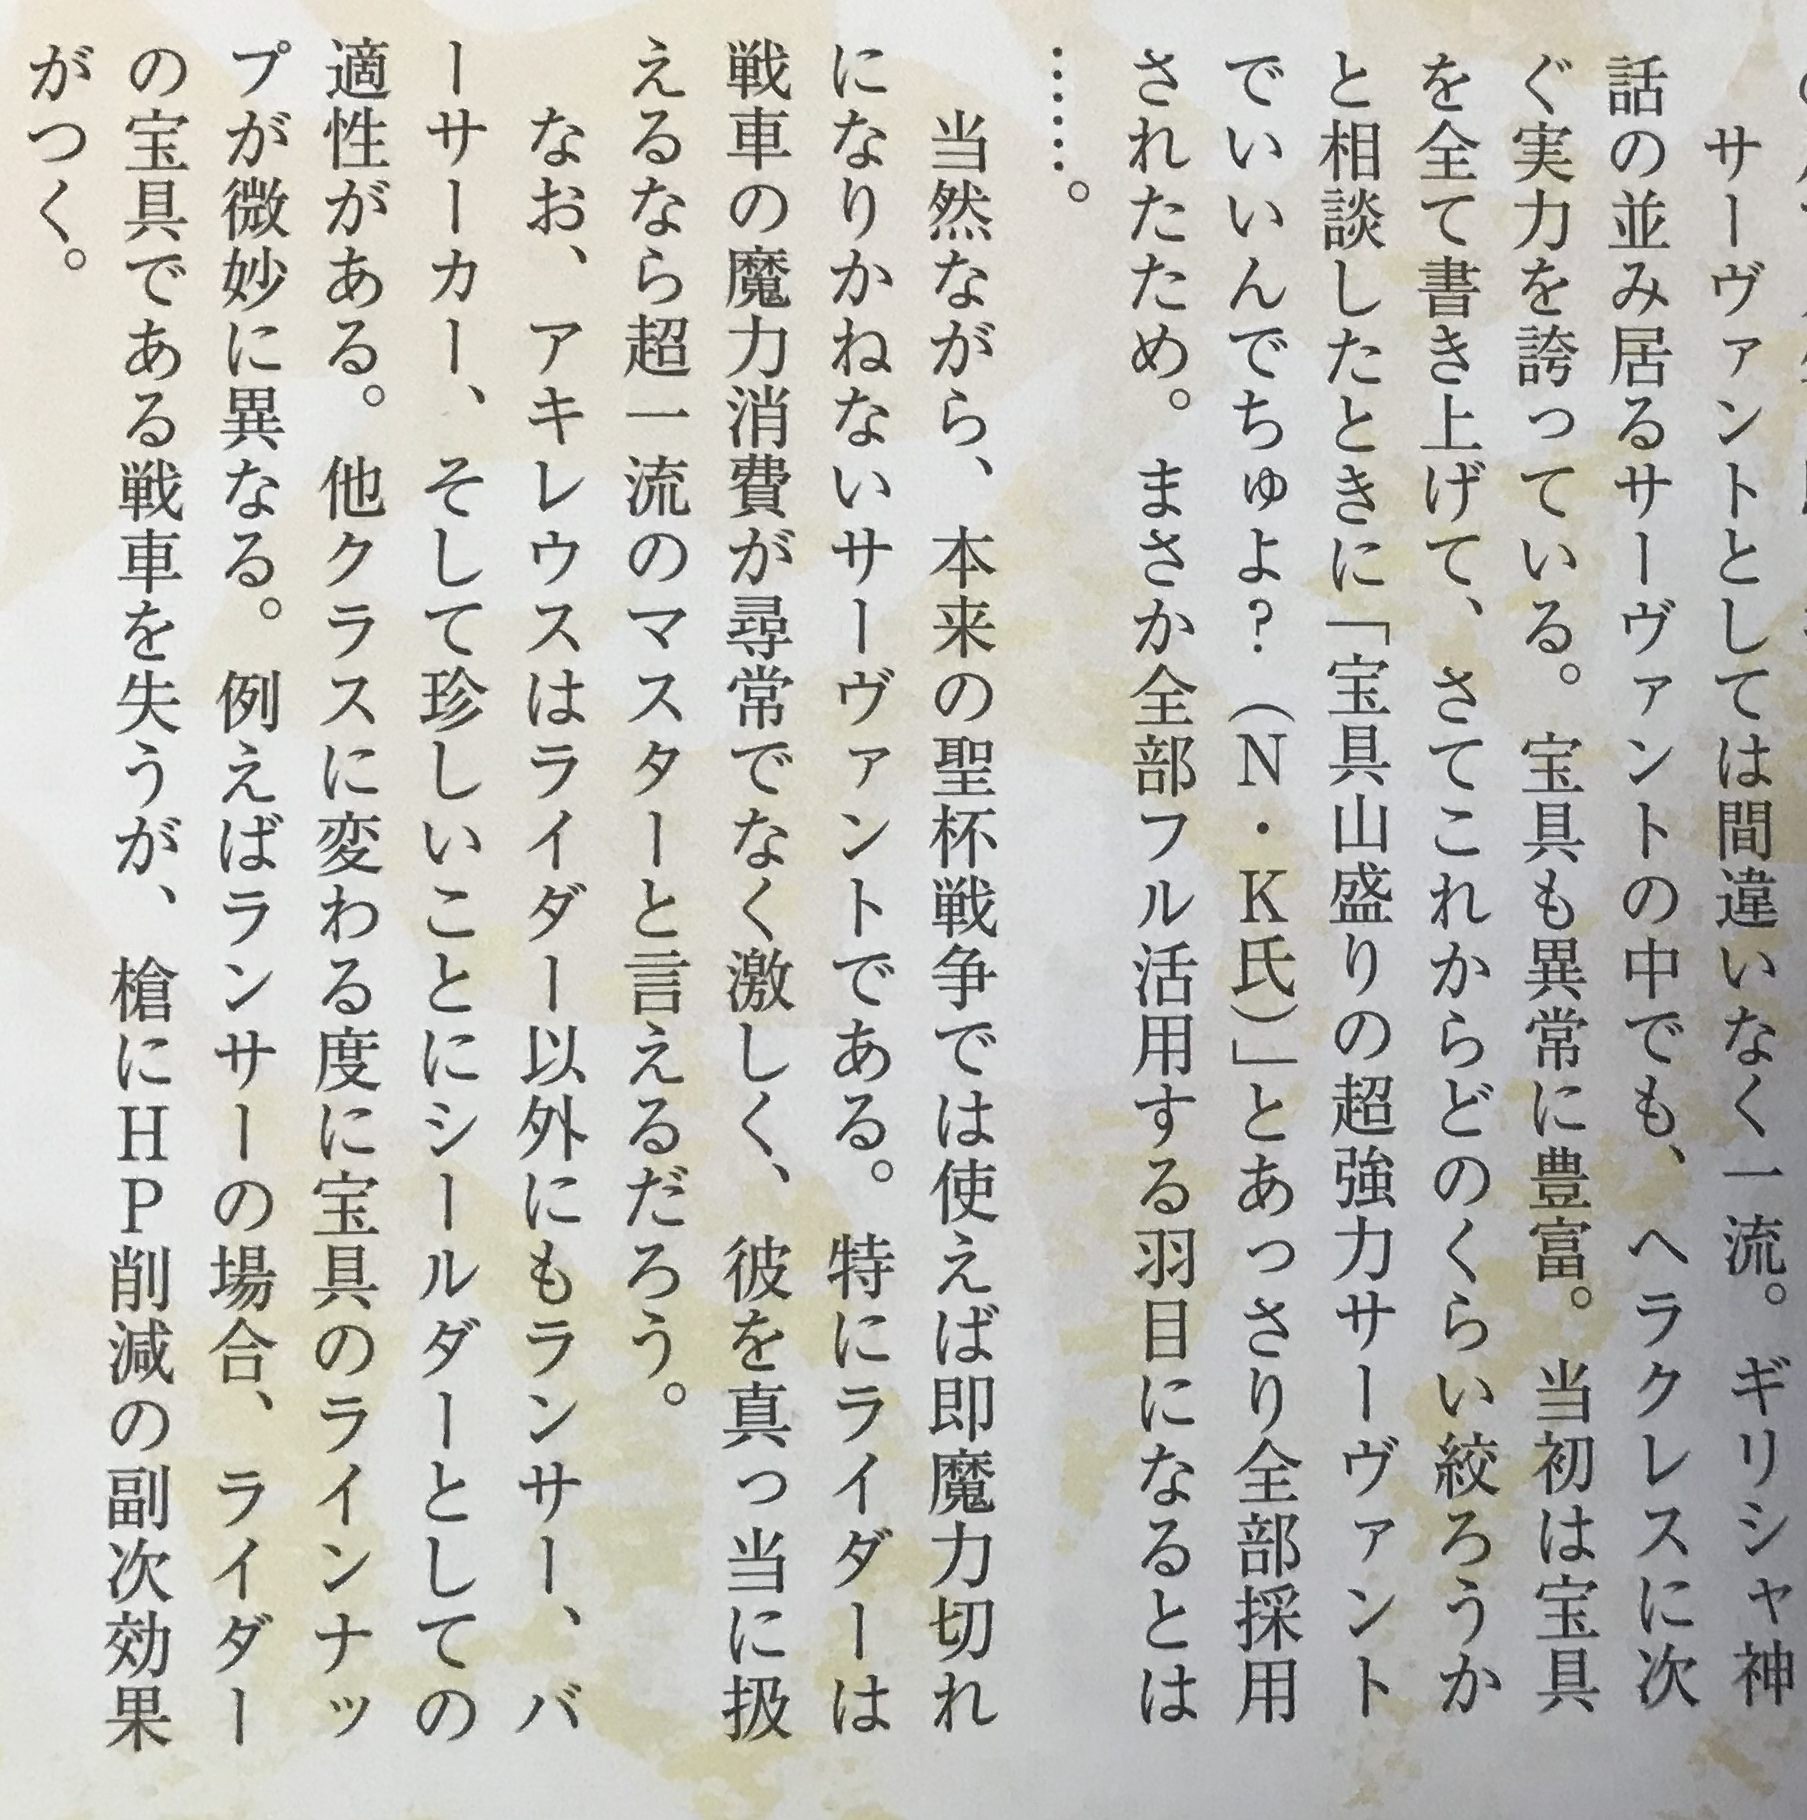 サーヴァントとしては間違いなく一流。ギリシャ神
話の並み居るサーヴァントの中でも、ヘラクレスに次
ぐ実力を誇っている。宝具も異常に豊富。当初は宝具
を全て書き上げて、さてこれからどのくらい絞ろうか
と相談したときに「宝具山盛りの超強力サーヴァント
でいいんでちゅよ？（N・K氏）」とあっさり全部採用
されたため。まさか全部フル活用する羽目になるとは
……。
当然ながら、本来の聖杯戦争では使えば即魔力切れ
になりかねないサーヴァントである。特にライダーは
戦車の魔力消費が尋常でなく激しく、彼を真っ当に扱
えるなら超一流のマスターと言えるだろう。
なお、アキレウスはライダー以外にもランサー、バ
ーサーカー、そして珍しいことにシールダーとしての
適性がある。他クラスに変わる度に宝具のラインナッ
プが微妙に異なる。例えばランサーの場合、ライダー
の宝具である戦車を失うが、槍にHP削減の副次効果
がつく。